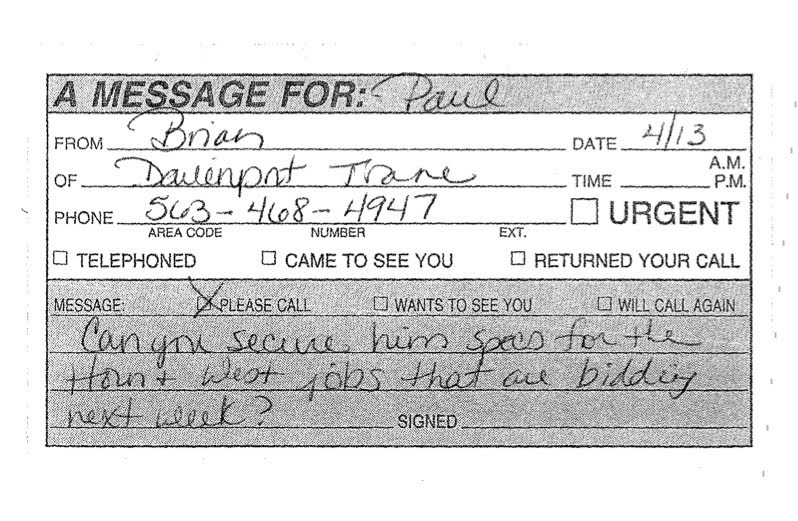 A MESSAGE FOR: Paul
FROM Brian DATE 4/13
OF Davenport Trane TIME A.M. P.M.
PHONE 563-468-4947 URGENT
AREA CODE NUMBER EXT.
TELEPHONED CAME TO SEE YOU RETURNED YOUR CALL
MESSAGE: PLEASE CALL WANTS TO SEE YOU WILL CALL AGAIN
Can you secure him specs for the
West jobs that are bidding
next week? SIGNED